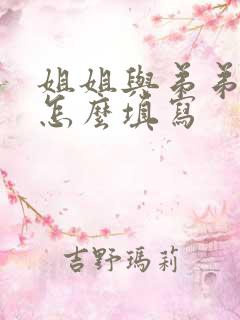 姐姐與弟弟
怎麼填寫
吉野瑪莉